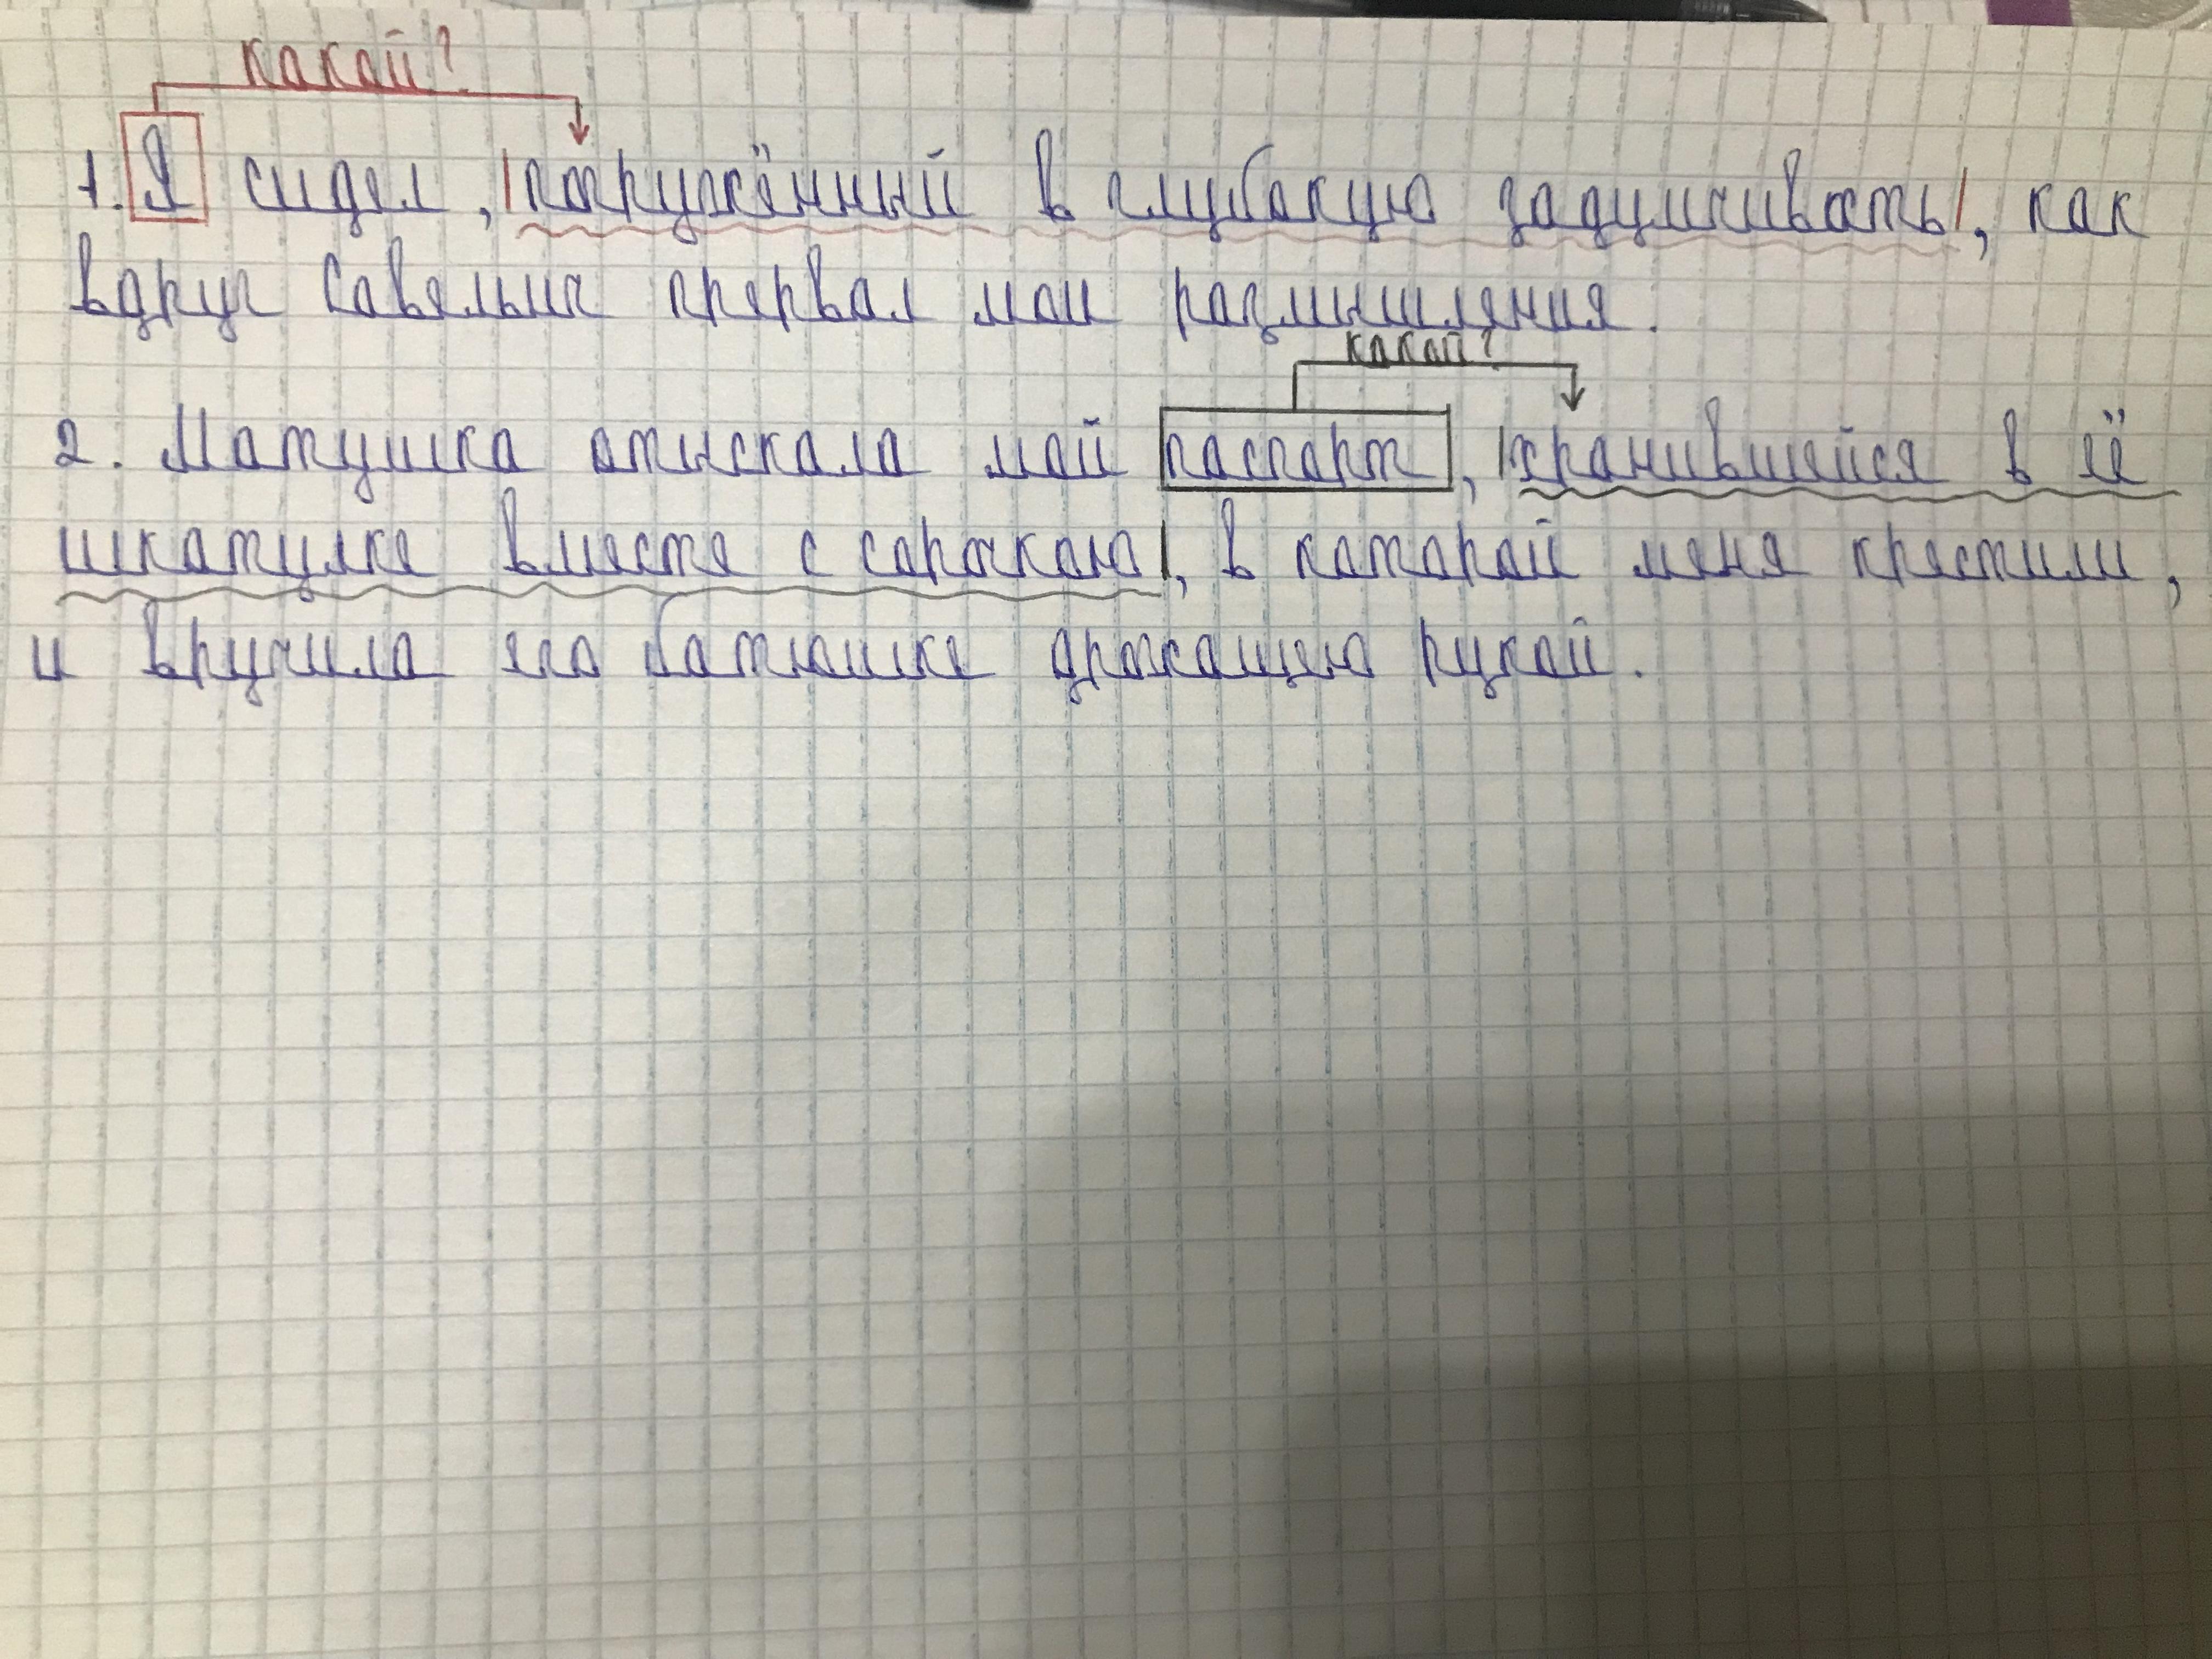 какой?
1. Я сидел, |погружённый в глубокую задумчивость|, как
вдруг Савельич прервал мои размышления.
какой?
2. Матушка отыскала мой паспорт, |хранившейся в её
шкатулке вместе с сорочкою|, в которой меня крестили,
и вручила его батюшке дрожащею рукой.